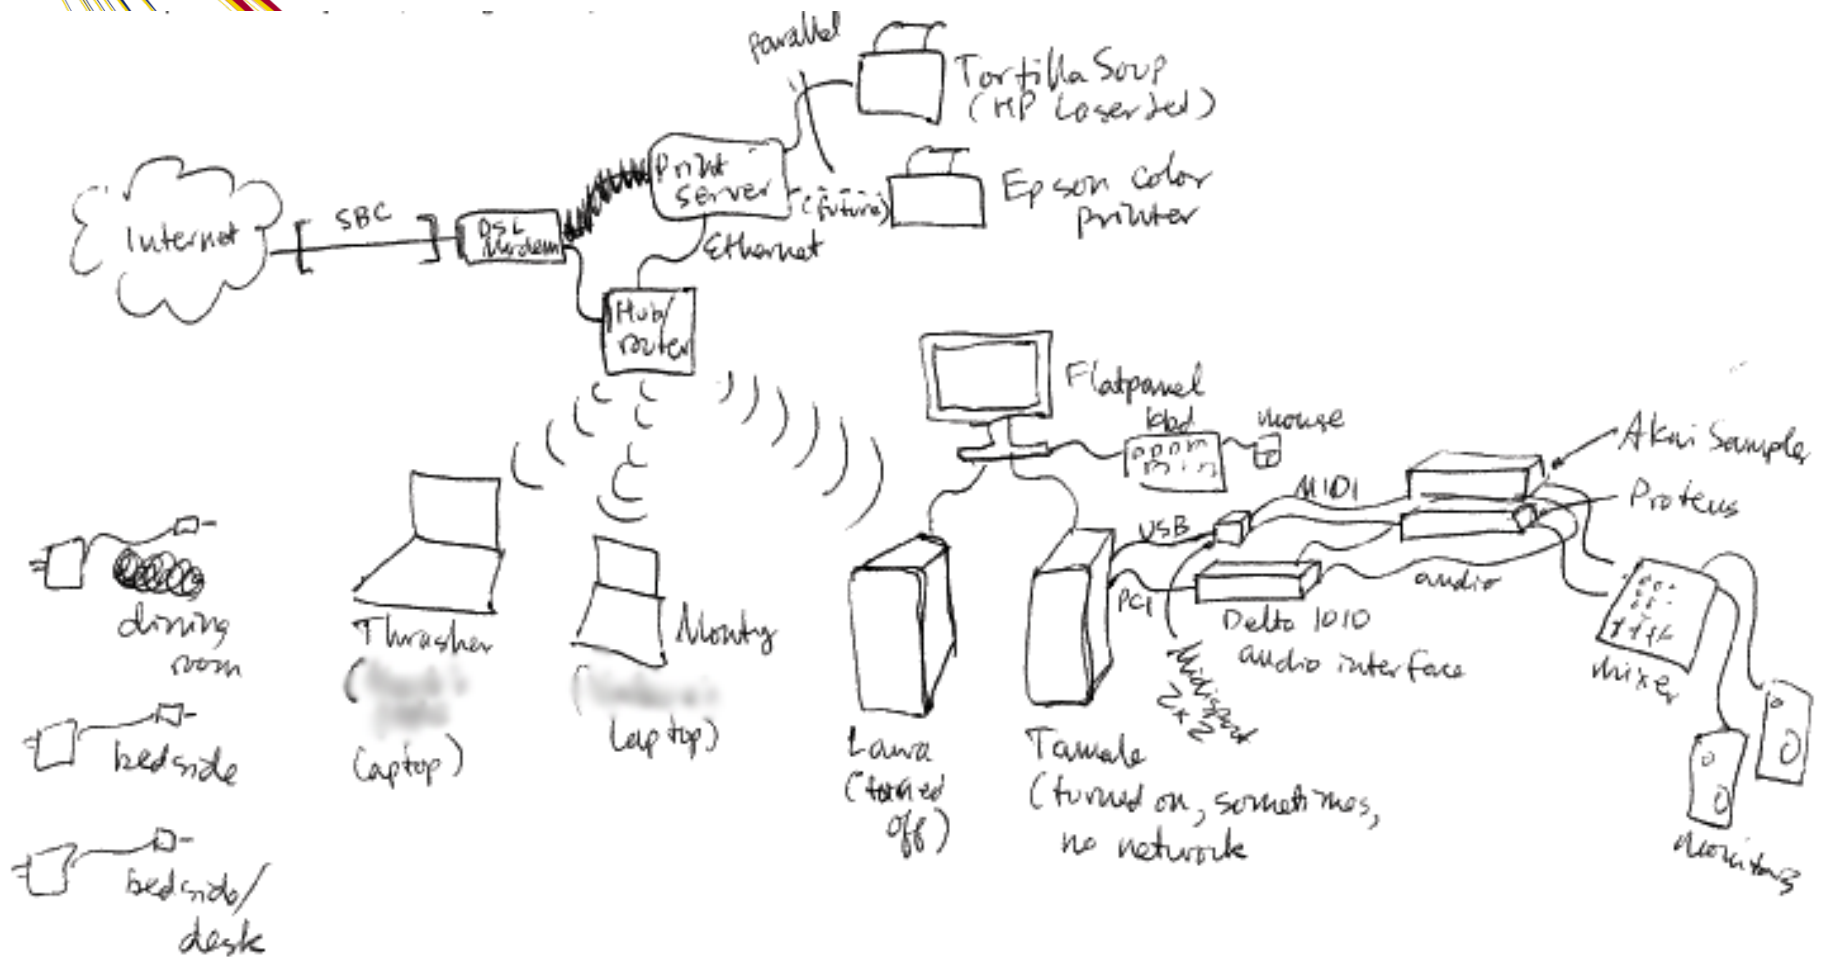 parallel
Tortilla Soup
(HP LaserJet)
Print
Server
(future)
Epson color
printer
Internet
SBC
DSL
Modem
Ethernet
Hub/
router
Flatpanel
kbd
mouse
Akai Sampler
MIDI
Proteus
USB
PCI
audio
Delta 1010
audio interface
Midisport
2x2
mixer
monitors
dining
room
Thrasher
(
laptop)
Monty
(
laptop)
bedside
Lava
(turned
off)
Tamale
(turned on, sometimes,
no network
bedside/
desk